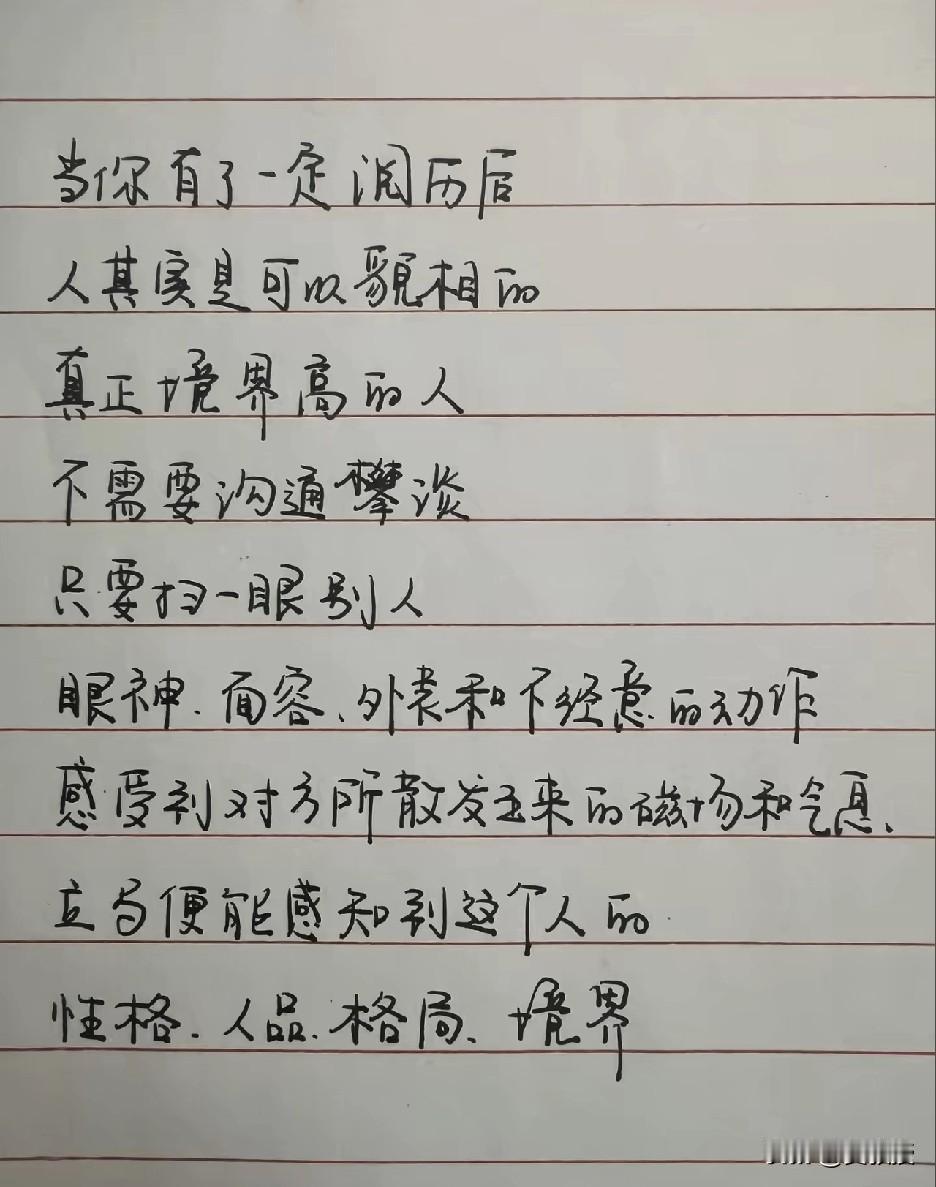 当你有了一定阅历后
人其实是可以貌相的
真正境界高的人
不需要沟通攀谈
只要扫一眼别人
眼神.面容、外表和不经意的动作
感受到对方所散发出来的磁场和气息、
立马便能感知到这个人的
性格.人品.格局、境界